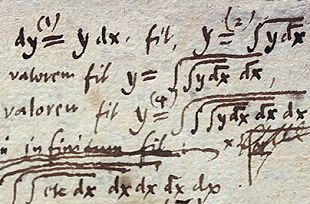 dy (1)= y dx. fit, y (2)= ∫ y dx
valorem fit y = ∫∫ y dx dx,
valorem fit y (4)= ∫∫∫ y dx dx dx
in infinitum fit
∫∫ etc dx dx dx dx